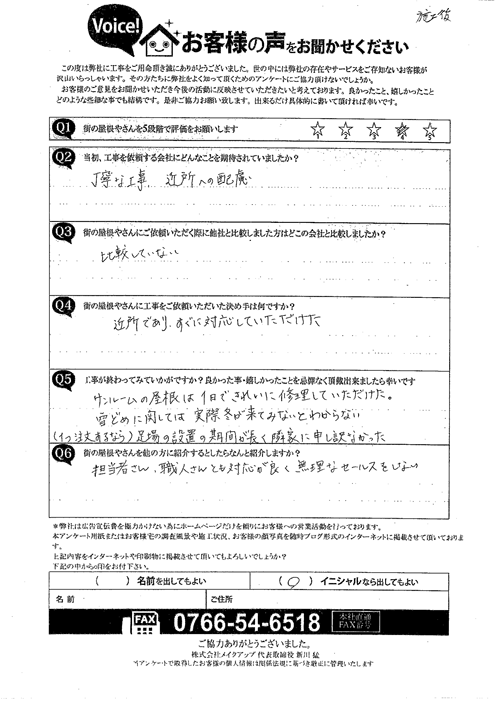 施工後
Voice!
お客様の声をお聞かせください
この度は弊社に工事をご用命頂き誠にありがとうございました。世の中には弊社の存在やサービスをご存知ないお客様が
沢山いらっしゃいます。その方たちに弊社をよく知って頂くためのアンケートにご協力頂けないでしょうか。
お客様のご意見をお聞かせいただき今後の活動に反映させていただきたいと考えております。良かったこと、嬉しかったこと
どのような些細な事でも結構です。是非ご協力お願い致します。出来るだけ具体的に書いて頂ければ幸いです。
Q1 街の屋根やさんを5段階で評価をお願いします
1 2 3 4 5
Q2 当初、工事を依頼する会社にどんなことを期待されていましたか?
丁寧な工事、近所への配慮
Q3 街の屋根やさんにご依頼いただく際に他社と比較しました方はどこの会社と比較しましたか?
比較していない
Q4 街の屋根やさんに工事をご依頼いただいた決め手は何ですか?
近所であり、すぐに対応していただけた
Q5 工事が終わってみていかがですか?良かった事・嬉しかったことを忌憚なく頂戴出来ましたら幸いです
サンルームの屋根は1日できれいに修理していただけた。
雪どめに関しては実際冬が来てみないとわからない
(1つ注文するなら)足場の設置の期間が長く隣家に申し訳なかった
Q6 街の屋根やさんを他の方に紹介するとしたらなんと紹介しますか?
担当者さん、職人さんとも対応が良く無理なセールスをしない
*弊社は広告宣伝費を極力かけない為にホームページだけを頼りにお客様への営業活動を行っております。
本アンケート用紙またはお客様宅の調査風景や施工状況、お客様の顔写真を随時ブログ形式のインターネットに掲載させて頂いております。
上記内容をインターネットや印刷物に掲載させて頂いてもよろしいでしょうか?
下記の中から○印をお付下さい。
( ) 名前を出してもよい (○) イニシャルなら出してもよい
名前 ご住所
FAX 0766-54-6518 本社直通 FAX番号
ご協力ありがとうございました。
株式会社メイクアップ 代表取締役 新川 猛
*アンケートで取得したお客様の個人情報は関係法規に基づき厳正に管理いたします